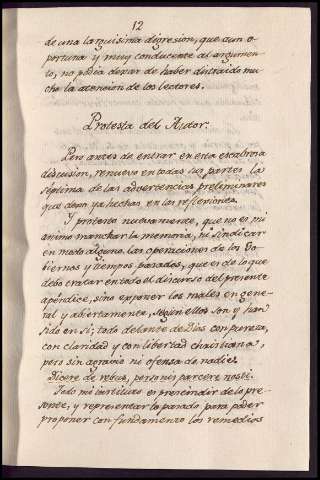 12
de una larguisima digresion, que aun o-
portuna y muy conducente al argumen-
to, no podia dexar de haber distraido mu-
cho la atencion de los lectores.
Protesta del Autor.
Pero antes de entrar en esta escabrosa
discusion, renuevo en todas sus partes la
septima de las advertencias preliminares
que dexo ya hechas en las reflexiones.
Y protesto nuevamente, que no es mi
animo manchar la memoria, ni sindicar
en modo alguno las operaciones de los Go-
biernos y tiempos pasados, que es de lo que
debo tratar en todo el discurso del presente
apéndice, sino exponer los males en gene-
ral y abiertamente, segun ellos son y han
sido en sí; todo delante de Dios con pureza,
con claridad y con libertad christiana,
pero sin agravio ni ofensa de nadie.
Dicere de rebus, personis parcere nosti.
Todo mi instituto es prescindir de lo pre-
sente, y representar lo pasado para poder
proponer con fundamento los remedios